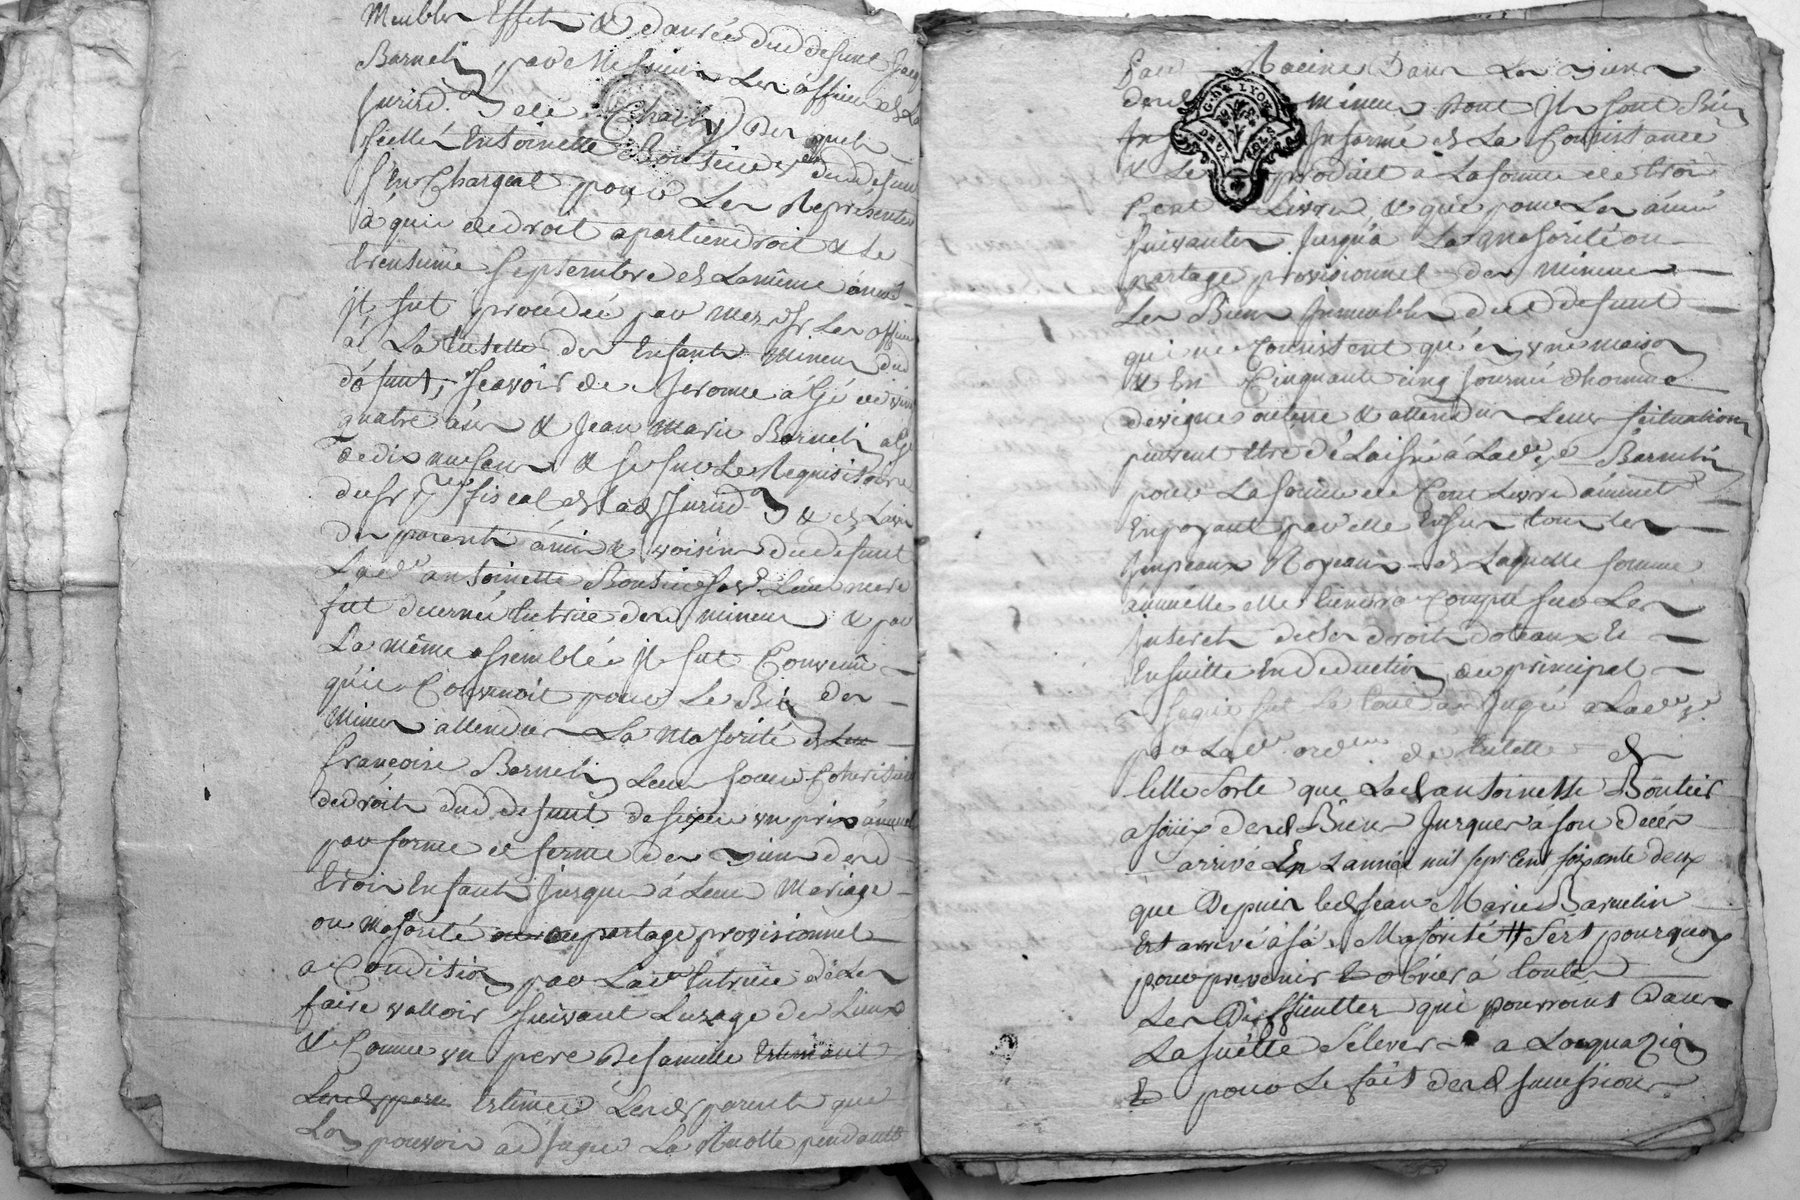 Meubles Effets & danrée dud defunt
Barnelin par Messieurs Les officiers
Jurisd.on de Charly Des quels
Antoinette Boutier dud defunt
S'En Chargeat pour Les Représenter
à qui de droit apartiendroit & Le
trensieme Septembre de La même année
jl fut procedé par mes d. Srs Les officiers
à La tutelle des Enfants Mineurs dud
défunt, Scavoir de Jerome âgé de vint
quatre ans & Jean Marie Barnelin agé
de dix neuf ans & Le Requisitoire
du Sr fiscal de lad Jurisd.on & de Lavis
des parents amis & voisins dud defunt
Lad.e antoinette Boutier Leur mere
fut decernée tutrice desd mineurs & par
La même assemblée jl fut Convenu
qu'il Convenoit pour Le Bien des
Mineurs attendre La Majorité de Leur
francoise Barnelin Leur soeur Coheritiere
de droit dud defunt de fixer un prix annuel
par forme de ferme des Biens desd
trois Enfants Jusque à Leur Mariage
ou Majorité ou au partage provisionnel
a Condition par Lad tutrice de Les
faire valloir suivant Luzage de Lieux
& Comme un pere De famille Estimant
Lesd pere Estimée Lesd parents que
Lon pouvoir adjuger La Recolte pendante
par Racines Dans Les Biens
desd Mineurs Dont Jls sont Bien
Informé de La Consistance
& Le produit à La somme de trois
Cent Livres & que pour Les années
suivantes Jusqu'a La Majorité ou
partage provisionnel des Mineurs
Les Biens Jmmeubles dud defunt
qui ne Consistent qu'en une maison
& En Cinquante cinq Journée d'homme
de vigne ou terre & attendu Leur Scituation
peuvent être délaissé à Lad.e Ve Barnelin
pour La somme de Cent Livres annuels
En payant par elle Ensus tous les
Jmpeaux Royeaux de Laquelle somme
annuelle elle tiendra Compte sur Les
Jnterets de Ses droits doteaux &
Ensuitte En deduction de principal
ce que fut Le tout adjugé a Lad.e Ve
par Lad.e ord.ce de tutelle de
telle Sorte que Lad antoinette Boutier
a joüis desd Biens Jusques a son decés
arrivé En Lannée mil sept Cent soixante deux
que Depuis led Jean Marie Barnelin
Est arrivé à sa Majorité # C'est pourquoy
pour prevenir & obvier à toutes
Les Difficultes qui pourroint Dans
La suitte S'elever a Loquazion
& pour Le fait desd successions
G. DE LYON
DEUX SOLS